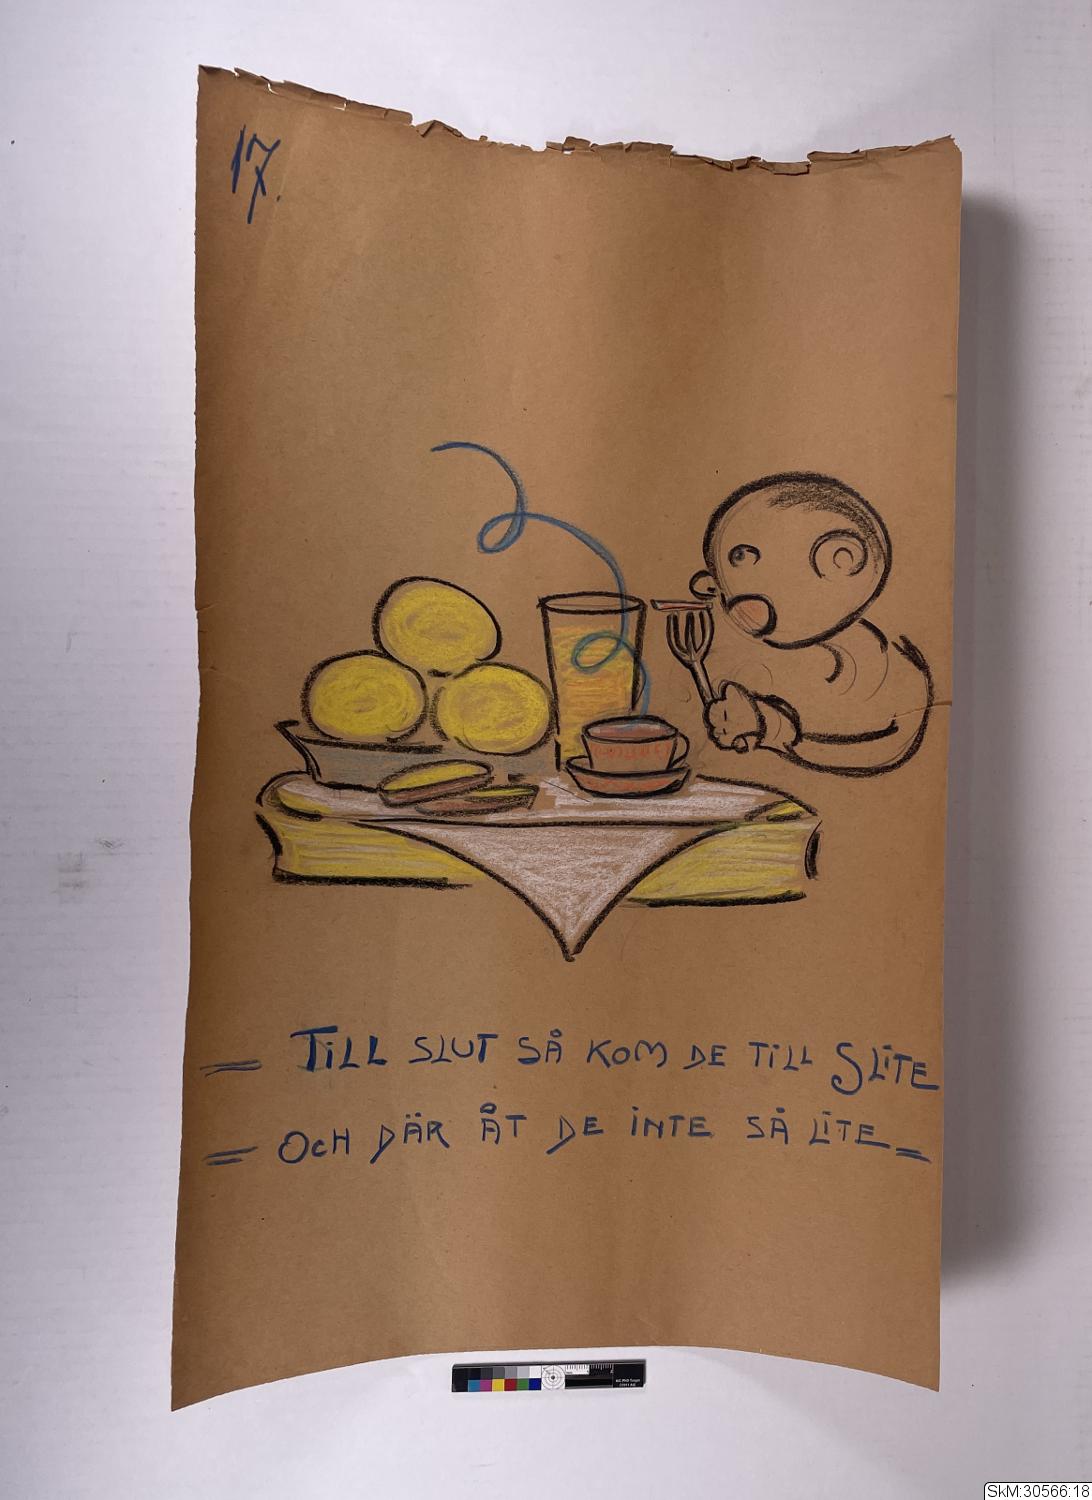 17.
= TiLL SLUT SÅ KOM DE TiLL SLiTE
= OcH DÄR ÅT DE iNTE SÅ LiTE =
SkM:30566:18